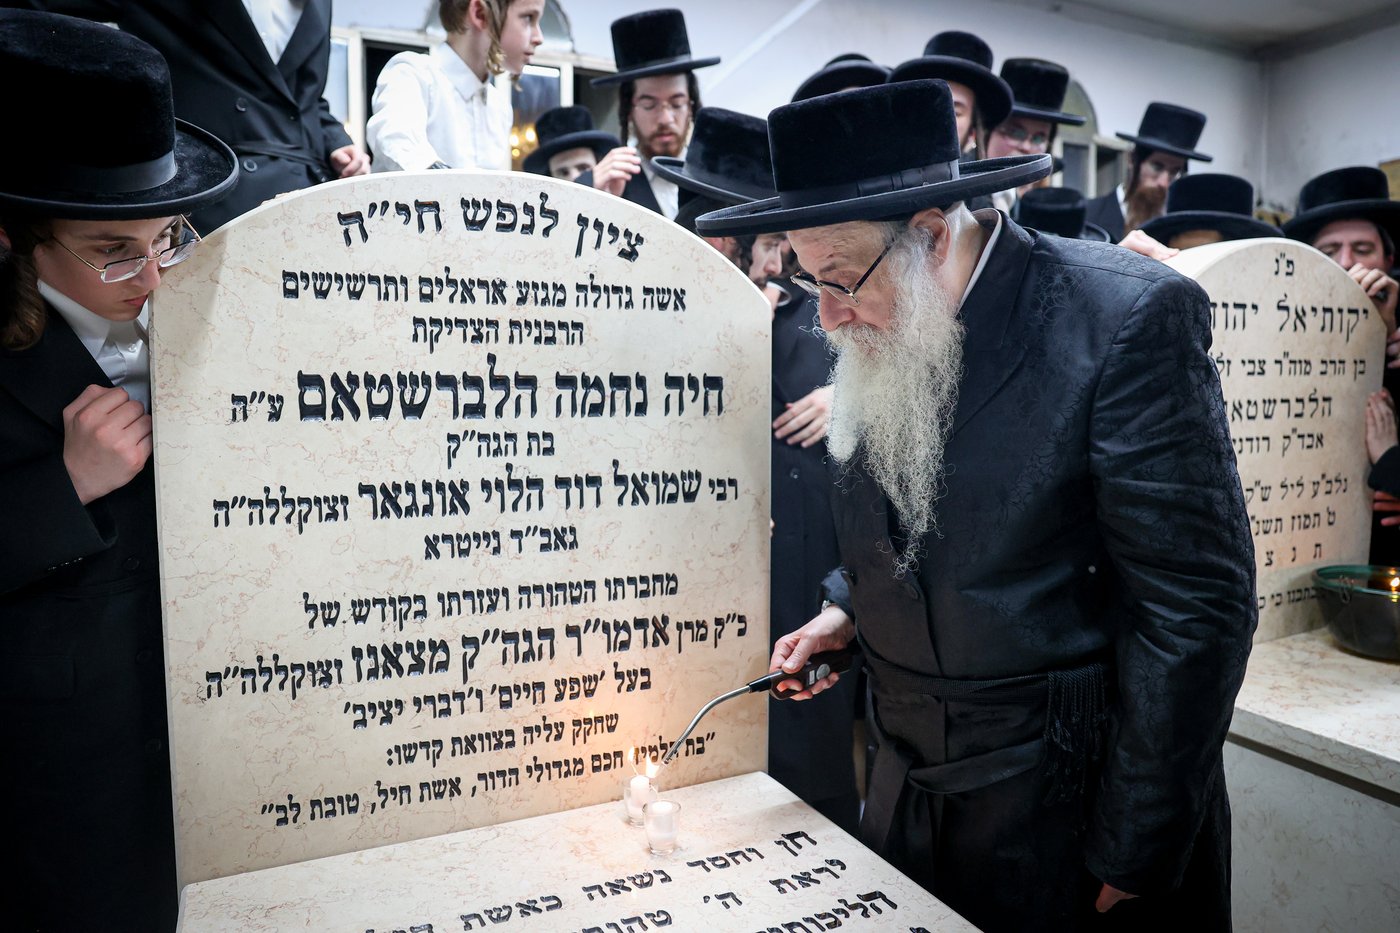 ציון לנפש חי״ה
אשה גדולה מגזע אראלים ותרשישים
הרבנית הצדיקת
חיה נחמה הלברשטאם ע״ה
בת הגה״ק
רבי שמואל דוד הלוי אונגאר זצוקללה״ה
גאב״ד נייטרא
מחברתו הטהורה ועזרתו בקודש של
כ״ק מרן אדמו״ר הגה״ק מצאנז זצוקללה״ה
בעל ׳שפע חיים׳ ו׳דברי יציב׳
שחקק עליה בצוואת קדשו:
״בת תלמיד חכם מגדולי הדור, אשת חיל, טובת לב״
חן וחסד נשאה כאשת
יראת ה׳
פ״נ
יקותיאל
בן הרב מוה״ר צבי
הלברשטאם
אבד״ק
נלב״ע ליל ש״ק
ט׳ תמוז
ת נ צ